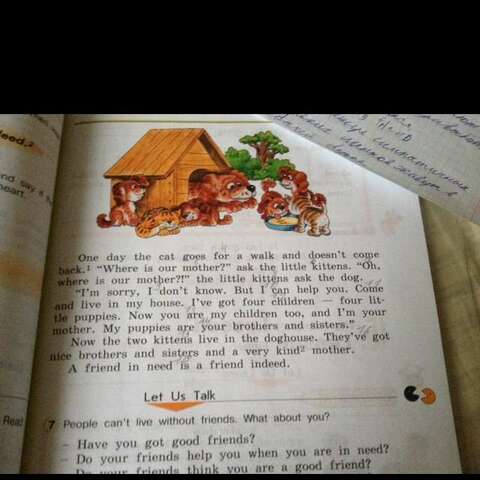 need.²
nd say
heart
One day the cat goes for a walk and doesn't come
back.¹ "Where is our mother?" ask the little kittens. "Oh,
where is our mother?!" the little kittens ask the dog.
"I'm sorry, I don't know. But I can help you. Come
and live in my house. I've got four children — four lit-
tle puppies. Now you are my children too, and I'm your
mother. My puppies are your brothers and sisters."
Now the two kittens live in the doghouse. They've got
nice brothers and sisters and a very kind² mother.
A friend in need is a friend indeed.
Let Us Talk
Read
7 People can't live without friends. What about you?
– Have you got good friends?
– Do your friends help you when you are in need?
– Do your friends think you are a good friend?